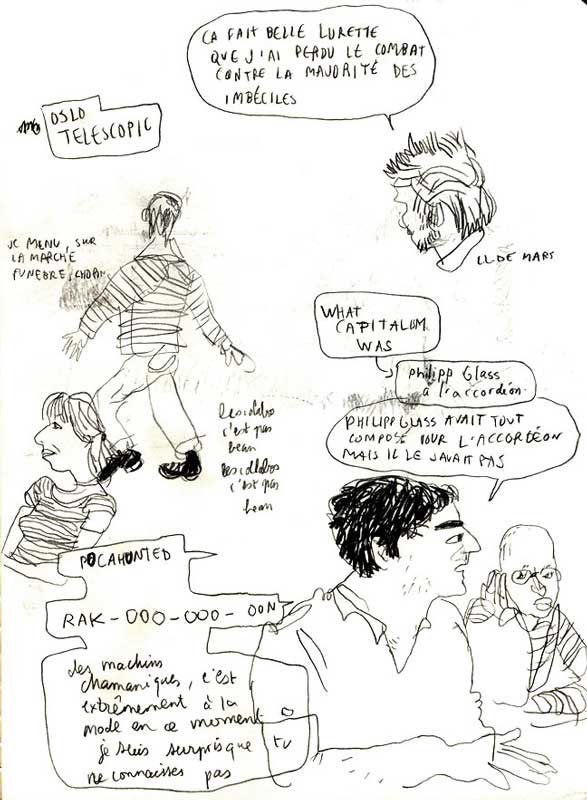 ÇA FAIT BELLE LURETTE
QUE J'AI PERDU LE COMBAT
CONTRE LA MAJORITÉ DES
IMBÉCILES
OSLO
TELESCOPIC
LL DE MARS
JC MENU, SUR
LA MARCHE
FUNEBRE, CHOPIN
WHAT
CAPITALISM
WAS
Philipp Glass
à l'accordéon.
PHILIPP GLASS AVAIT TOUT
COMPOSÉ POUR L'ACCORDÉON
MAIS IL LE SAVAIT PAS
c'est pas
beau
c'est pas
beau
POCAHUNTED
RAK-OOO-OOO-OON
des machins
chamaniques, c'est
extrêmement à la
mode en ce moment
je suis surpris que tu
ne connaisses pas